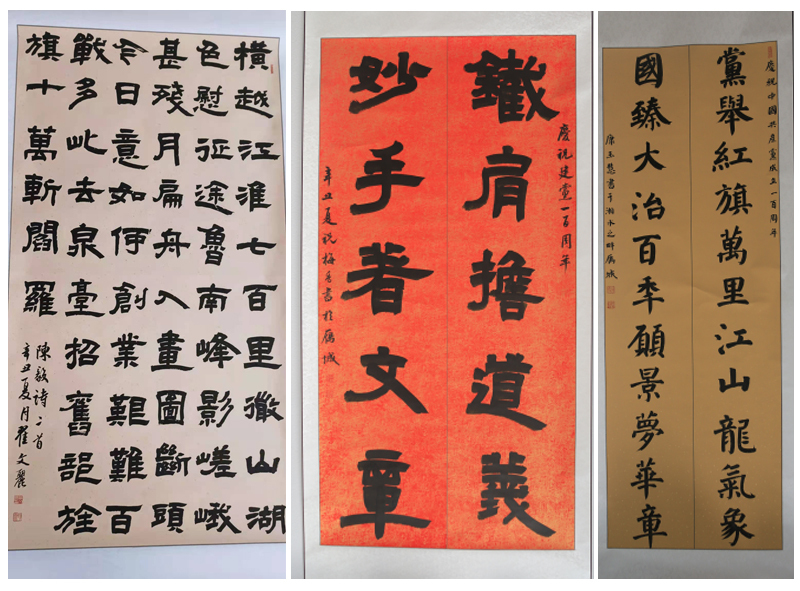 橫越江淮七百里微山湖
色慰征途魯南峰影嵯峨
甚殘月扁舟入畫圖斷頭
今日意如何創業艱難百
戰多此去泉臺招舊部旌
旗十萬斬閻羅
陳毅詩二首
辛丑夏月翟文麗
慶祝建黨一百周年
鐵肩擔道義
妙手著文章
辛丑夏祝梅香書於雁城
慶祝中國共產黨成立一百周年
黨舉紅旗萬里江山龍氣象
國臻大治百年願景夢華章
康玉慧書于湘水之畔雁城